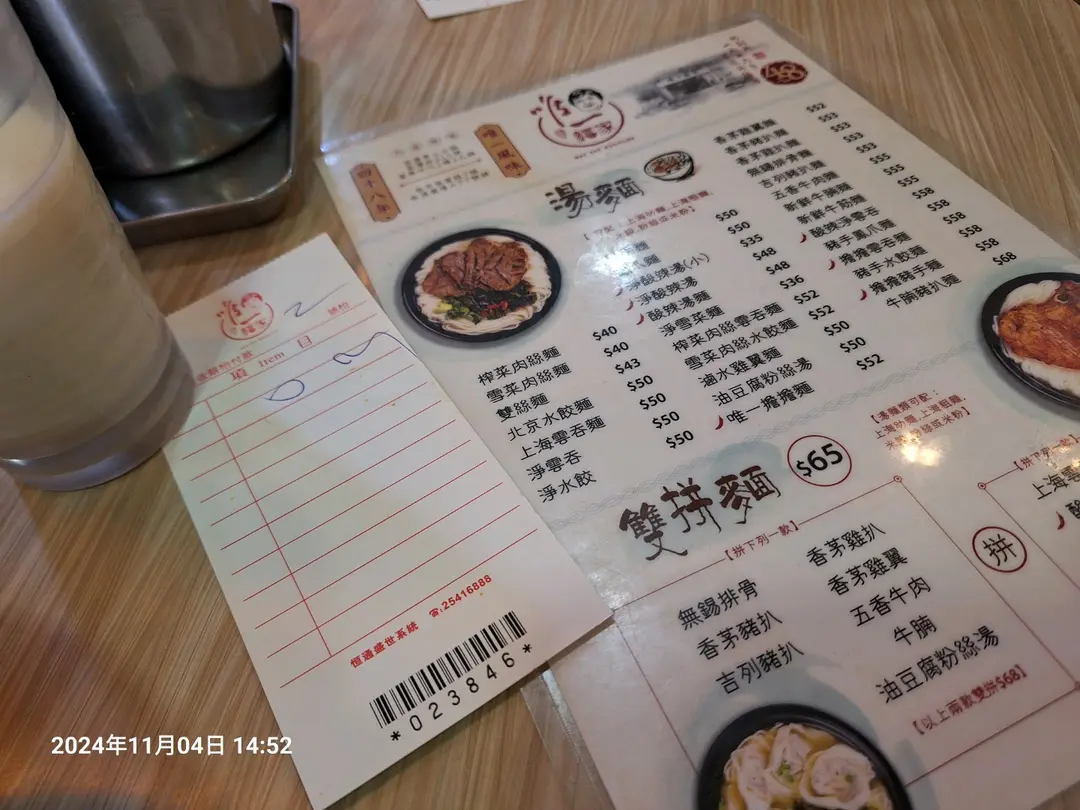 唯一麵家
四十八年
唯一風味
湯麵
榨菜肉絲麵 $40
雪菜肉絲麵 $40
雙絲麵 $43
北京水餃麵 $50
上海雲吞麵 $50
淨雲吞 $50
淨水餃 $50
淨酸辣湯(小) $35
淨酸辣湯 $48
酸辣湯麵 $48
淨雪菜麵 $36
榨菜肉絲雲吞麵 $52
雪菜肉絲水餃麵 $52
滷水雞翼麵 $50
油豆腐粉絲湯 $50
唯一擔擔麵 $52
香茅雞翼麵 $52
香茅豬扒麵 $53
香茅雞扒麵 $53
無錫排骨麵 $53
吉列豬扒麵 $55
五香牛肉麵 $55
新鮮牛腩麵 $55
新鮮牛筋麵 $58
酸辣淨雲吞 $58
豬手鳳爪麵 $58
擔擔雲吞麵 $58
豬手水餃麵 $58
擔擔豬手麵
牛腩豬扒麵 $68
雙拼麵 $65
【拼下列一款】
無錫排骨
香茅豬扒
吉列豬扒
香茅雞扒
香茅雞翼
五香牛肉
牛腩
油豆腐粉絲湯
【以上兩款雙拼$68】
拼
唯一麵家
2
號枱
項 Item 目
恒通盛世系統 ☎:25416888
*023846*
2024年11月04日 14:52